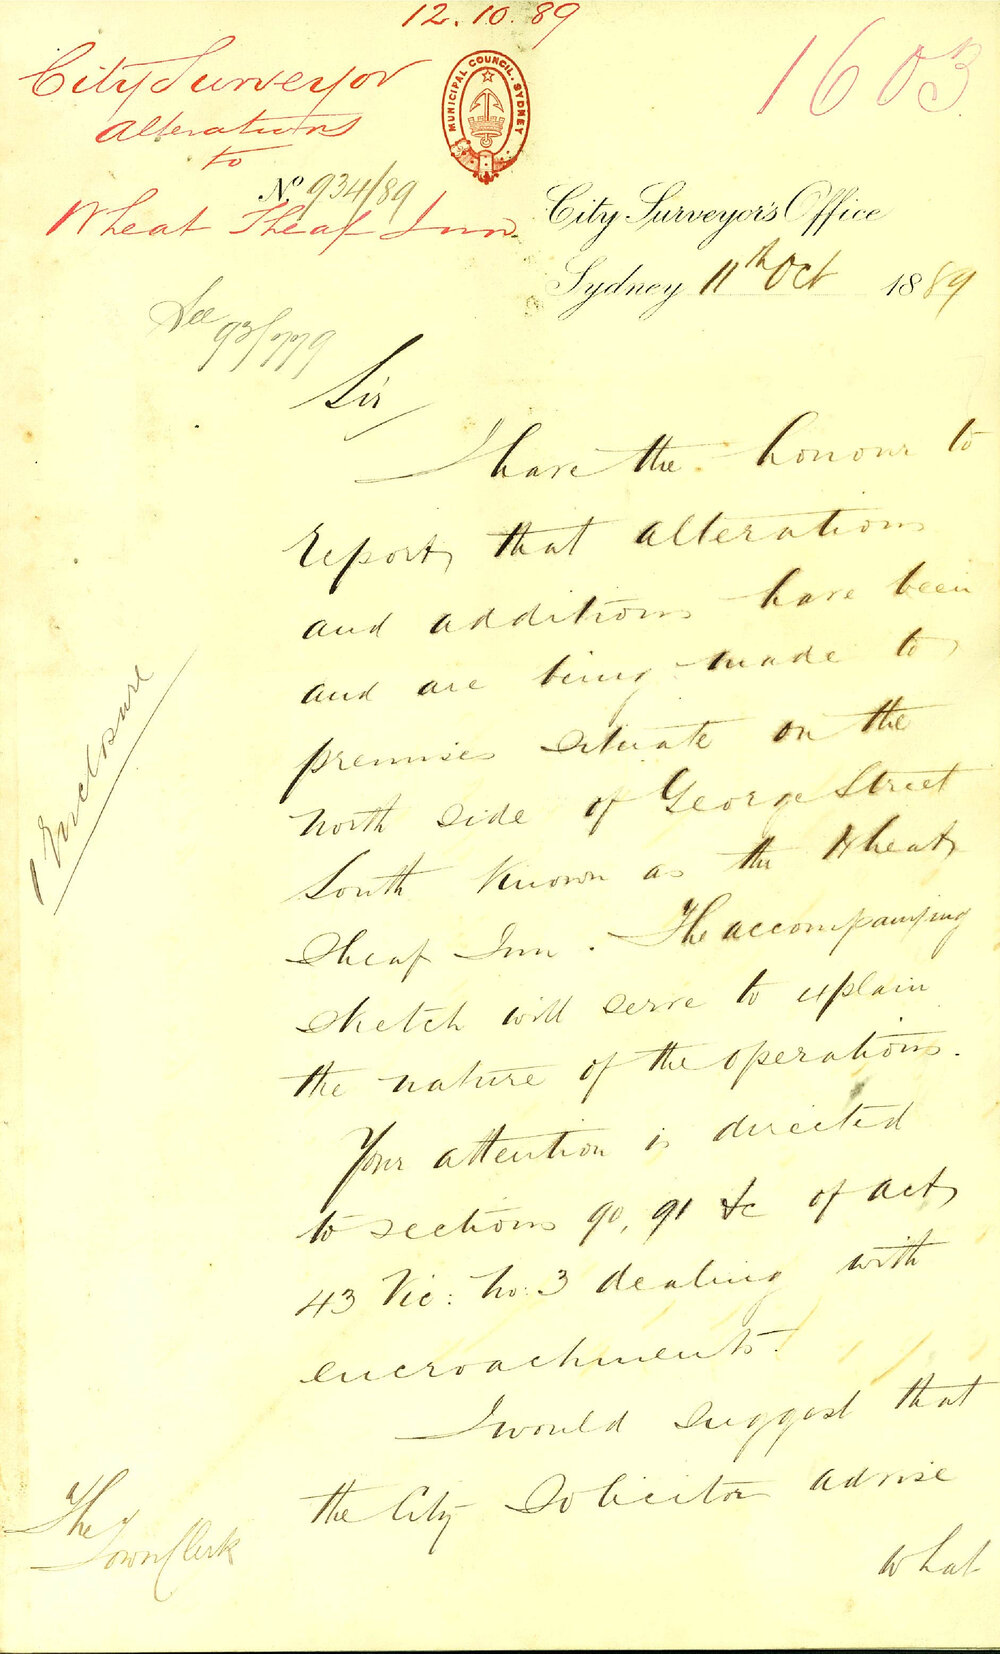 12.10.89
City Surveyor
Alterations
to
Wheat Sheaf Inn
MUNICIPAL COUNCIL. SYDNEY
1603
No 934/89
City Surveyor's Office
Sydney 11th Oct 1889
See
Sir
I have the honour to
report, that alterations
and additions have been
and are being made to
premises situate on the
north side of George Street
South known as the Wheat
Sheaf Inn. The accompanying
sketch will serve to explain
the nature of the operations.
Your attention is directed
to sections 90, 91 &c of act
43 Vic: No: 3 dealing with
encroachments.
I would suggest that
the City Solicitor advise
what
1 Enclosure
The
Town Clerk